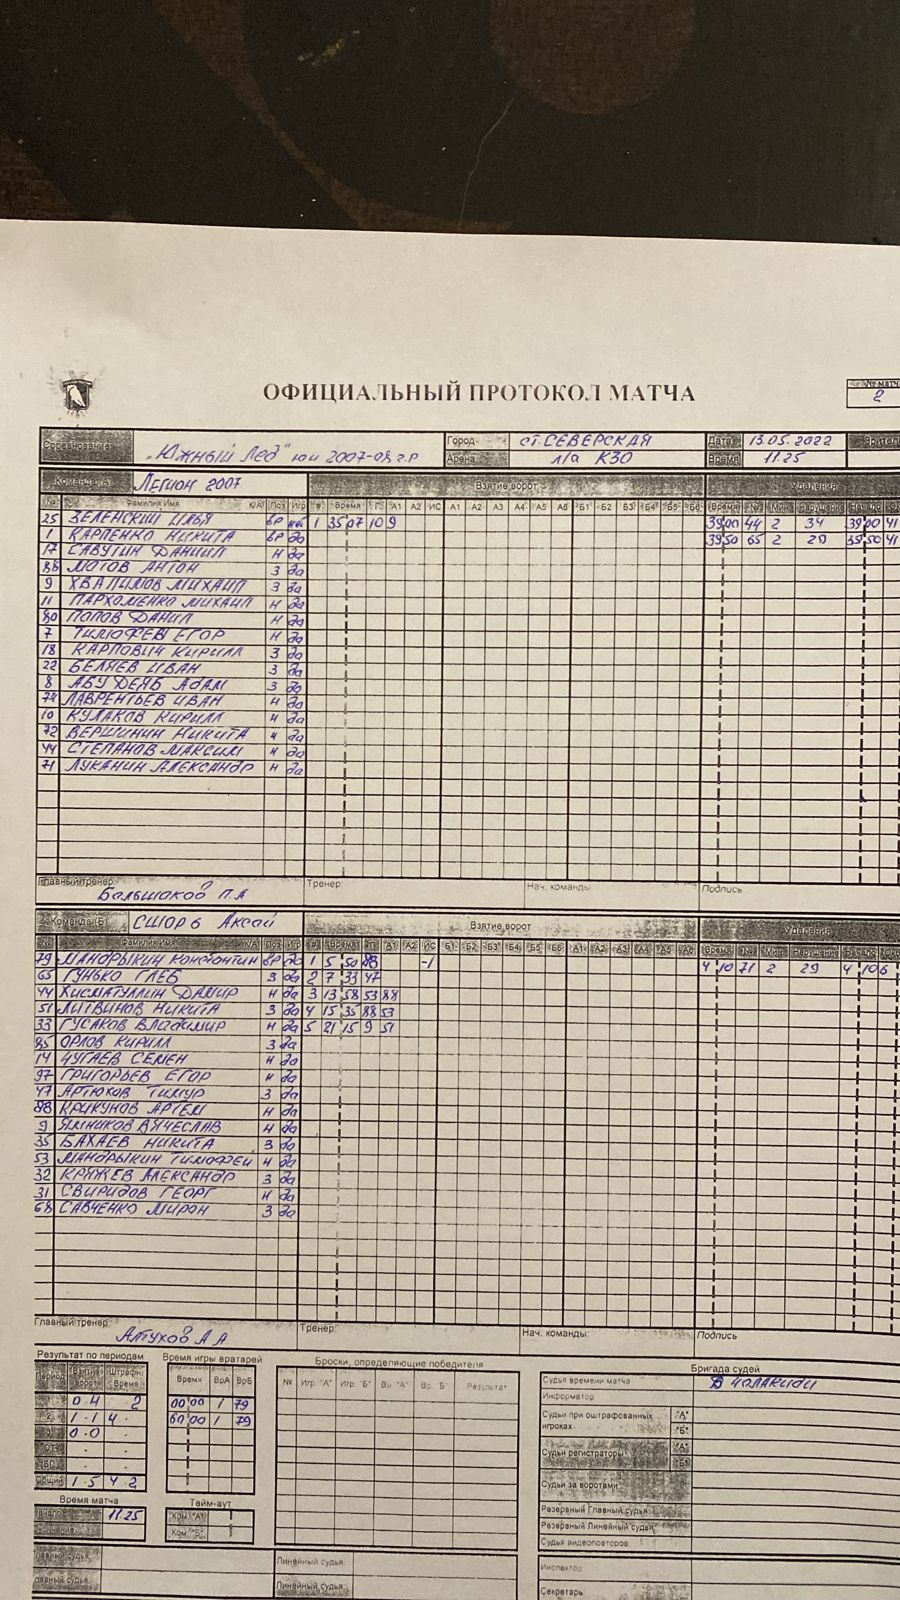 ОФИЦИАЛЬНЫЙ ПРОТОКОЛ МАТЧА
№ матч
2
Соревнование "Южный Лед" юн 2007-08 г.р Город ст. СЕВЕРСКАЯ Дата 13.05.2022 Зрител
Арена л/а КЗО Время 11.25
Команда(А) ЛЕГИОН 2007 Взятие ворот Удаления
№ Фамилия Имя К/А Поз Игр # Время Г А1 А2 ИС А1 А2 А3 А4 А5 А6 Б1 Б2 Б3 Б4 Б5 Б6 Время № Мин Нарушение Начало
25 ЗЕЛЕНСКИЙ ИЛЬЯ вр нет 1 35 07 10 9 39 00 44 2 34 39 00 41
1 КАРПЕНКО НИКИТА вр да 39 50 65 2 29 39 50 41
17 САВУТИН ДАНИИЛ н да
МОТОВ АНТОН з да
9 ХВАЛИМОВ МИХАИЛ з да
11 ПАРХОМЕНКО МИХАИЛ н да
80 ПОПОВ ДАНИЛ н да
7 ТИМОФЕЕВ ЕГОР н да
18 КАРПОВИЧ КИРИЛЛ з да
22 БЕЛЯЕВ ИВАН з да
8 АБУ ДЕЯБ АДАМ з да
74 ЛАВРЕНТЬЕВ ИВАН н да
10 КУЛАКОВ КИРИЛЛ н да
72 ВЕРШИНИН НИКИТА н да
44 СТЕПАНОВ МАКСИМ н да
71 ЛУКАНИН АЛЕКСАНДР н да
Главный тренер: Большаков П.А Тренер: Нач. команды: Подпись
Команда(Б) СШОР 6 Аксай Взятие ворот Удаления
№ Фамилия Имя К/А Поз Игр # Время Г А1 А2 ИС Б1 Б2 Б3 Б4 Б5 Б6 А1 А2 А3 А4 А5 А6 Время № Мин Нарушение Начало
79 МАНДРЫКИН КОНСТАНТИН вр да 1 5 50 88 -1 4 10 71 2 29 4 10 6
65 ГУНЬКО ГЛЕБ з да 2 7 33 47
44 ХИСМАТУЛЛИН ДАМИР н да 3 13 58 53 88
51 ЛИТВИНОВ НИКИТА з да 4 15 35 88 53
33 ГУСАКОВ ВЛАДИМИР н да 5 21 15 9 51
85 ОРЛОВ КИРИЛЛ з да
14 ЧУГАЕВ СЕМЕН н да
97 ГРИГОРЬЕВ ЕГОР н да
47 АРТЮХОВ ТИМУР з да
88 КРИКУНОВ АРТЕМ н да
9 ЯМНИКОВ ВЯЧЕСЛАВ н да
35 БАХАЕВ НИКИТА з да
53 МАНДРЫКИН ТИМОФЕЙ н да
32 КРЯЖЕВ АЛЕКСАНДР з да
31 СВИРИДОВ ГЕОРГ н да
68 САВЧЕНКО МИРОН з да
Главный тренер: Тренер: Нач. команды: Подпись
Результат по периодам Время игры вратарей Броски, определяющие победителя Бригада судей
Период Взятие ворот Штрафн. Время Время ВрА ВрБ № Игр. "А" Игр. "Б" Вр. "А" Вр. "Б" Результат Судья времени матча
0 4 - 2 00 00 1 79 Информатор
2 1 - 1 4 - 60 00 1 79 Судьи при оштрафованных игроках "А"
0 - 0 "Б"
ОТ - - Судьи регистраторы "А"
- - "Б"
Общий 1 - 5 4 - 2 Судьи за воротами
Время матча Тайм-аут Резервный Главный судья
11.25 Ком. "А" Резервный Линейный судья
Ком. "Б" Судья видеоповторов
Главный судья Линейный судья Инспектор
Главный судья Линейный судья: Секретарь